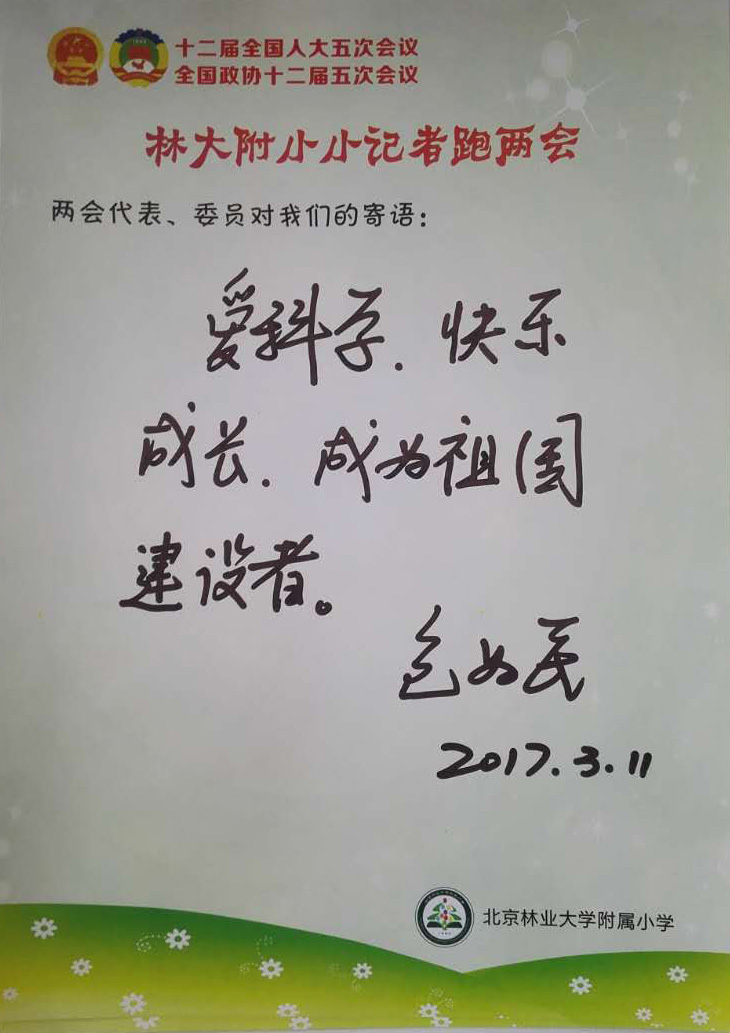 十二届全国人大五次会议
全国政协十二届五次会议
林大附小小记者跑两会
两会代表、委员对我们的寄语：
爱科学.快乐
成长.成为祖国
建设者。
包为民
2017.3.11
北京林业大学附属小学